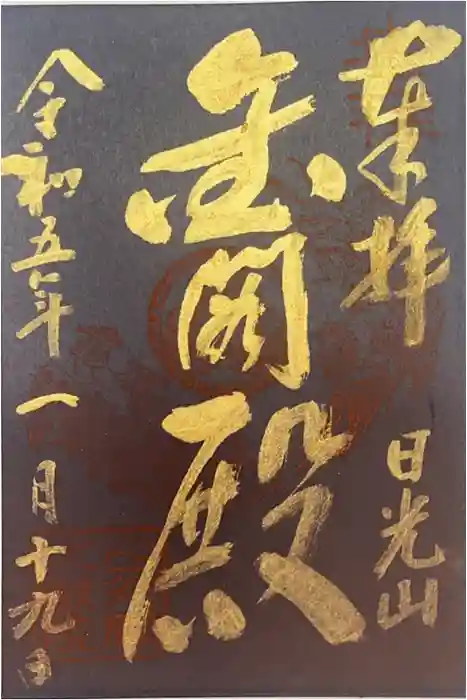 奉拝
日光山
金閣殿
令和五年一月十九日